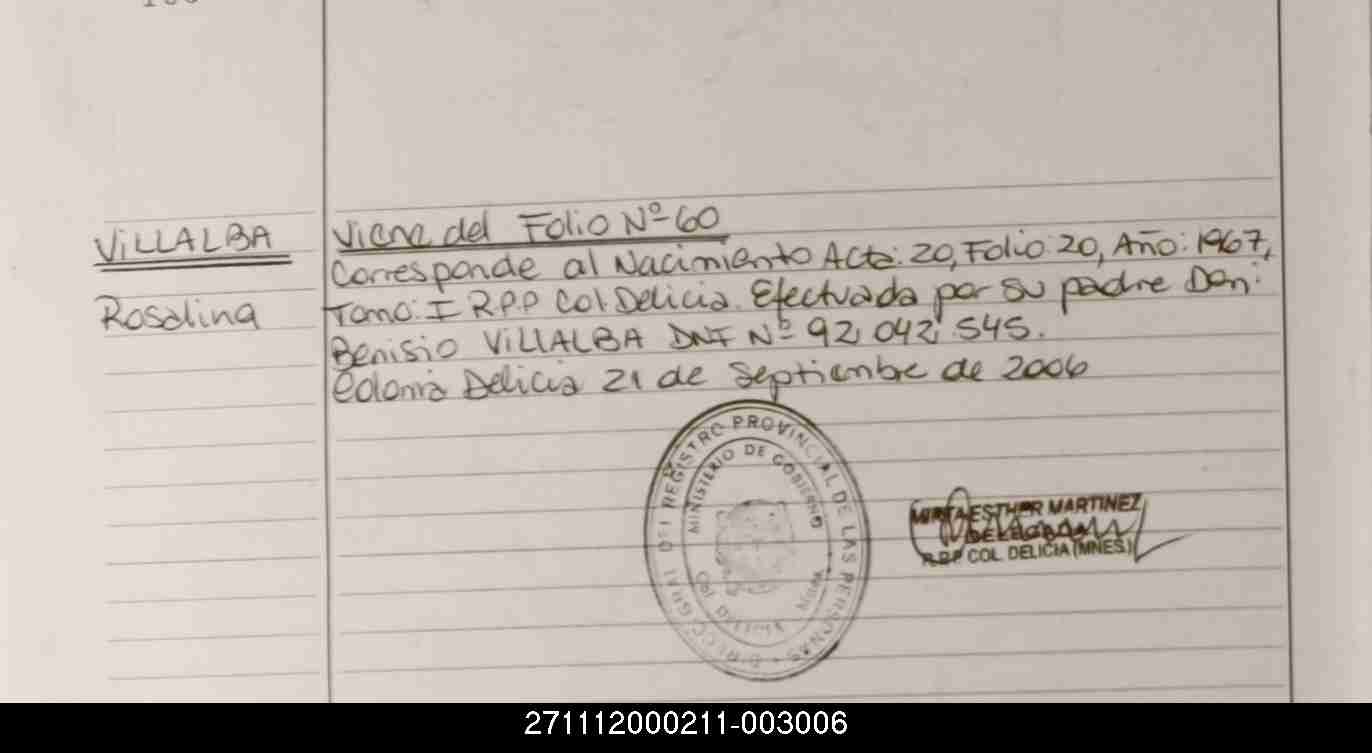 VILLALBA
Rosalina
Viene del Folio Nº 60
Corresponde al Nacimiento Acta: 20, Folio: 20, Año: 1967,
Tomo: I R.P.P Col. Delicia. Efectuada por su padre Don:
Benisio VILLALBA DNI Nº 92.042.545.
Colonia Delicia 21 de Septiembre de 2006
DIRECC. GRAL DEL REGISTRO PROVINCIAL DE LAS PERSONAS
MINISTERIO DE GOBIERNO
MIRTA ESTHER MARTINEZ
DELEGADA
R.P.P COL. DELICIA (MNES)
271112000211-003006